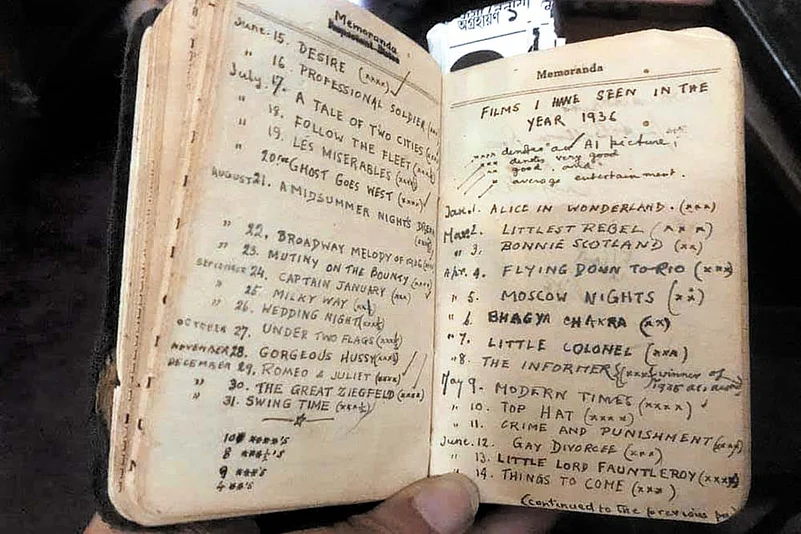 Memoranda
June. 15. DESIRE (xxxx) ✓
" 16 PROFESSIONAL SOLDIER
July. 17. A TALE OF TWO CITIES
" 18. FOLLOW THE FLEET
" 19. LES MISERABLES
" 20. GHOST GOES WEST
AUGUST 21. A MIDSUMMER NIGHT'S DREAM
" 22. BROADWAY MELODY OF 1936
" 23. MUTINY ON THE BOUNTY
SEPTEMBER 24. CAPTAIN JANUARY (xxx)
" 25. MILKY WAY
" 26. WEDDING NIGHT (xxx½)
OCTOBER 27. UNDER TWO FLAGS (xxx½)
NOVEMBER 28. GORGEOUS HUSSY (xxx½)
DECEMBER 29. ROMEO & JULIET (xxxx)
" 30. THE GREAT ZIEGFELD (xxxx)
" 31. SWING TIME (xxx½)
10 xxxx's
8 xxx½'s
9 xxx's
4 xx's
Memoranda
FILMS I HAVE SEEN IN THE
YEAR 1936
xxxx denotes an A1 picture;
denotes very good
" good, and
" average entertainment.
Jan. 1. ALICE IN WONDERLAND. (xxx)
Mar. 2. LITTLEST REBEL (xxx)
" 3. BONNIE SCOTLAND (xx)
Apr. 4. FLYING DOWN TO RIO (xxx)
" 5. MOSCOW NIGHTS (xx)
" 6. BHAGYA CHAKRA (xx)
" 7. LITTLE COLONEL (xxx)
" 8. THE INFORMER winner of
1935 ac. award
May 9. MODERN TIMES (xxxx) ✓
" 10. TOP HAT (xxxx)
" 11. CRIME AND PUNISHMENT
June. 12. GAY DIVORCEE (xxx)
" 13. LITTLE LORD FAUNTLEROY
" 14. THINGS TO COME (xxx)
(continued to the previous